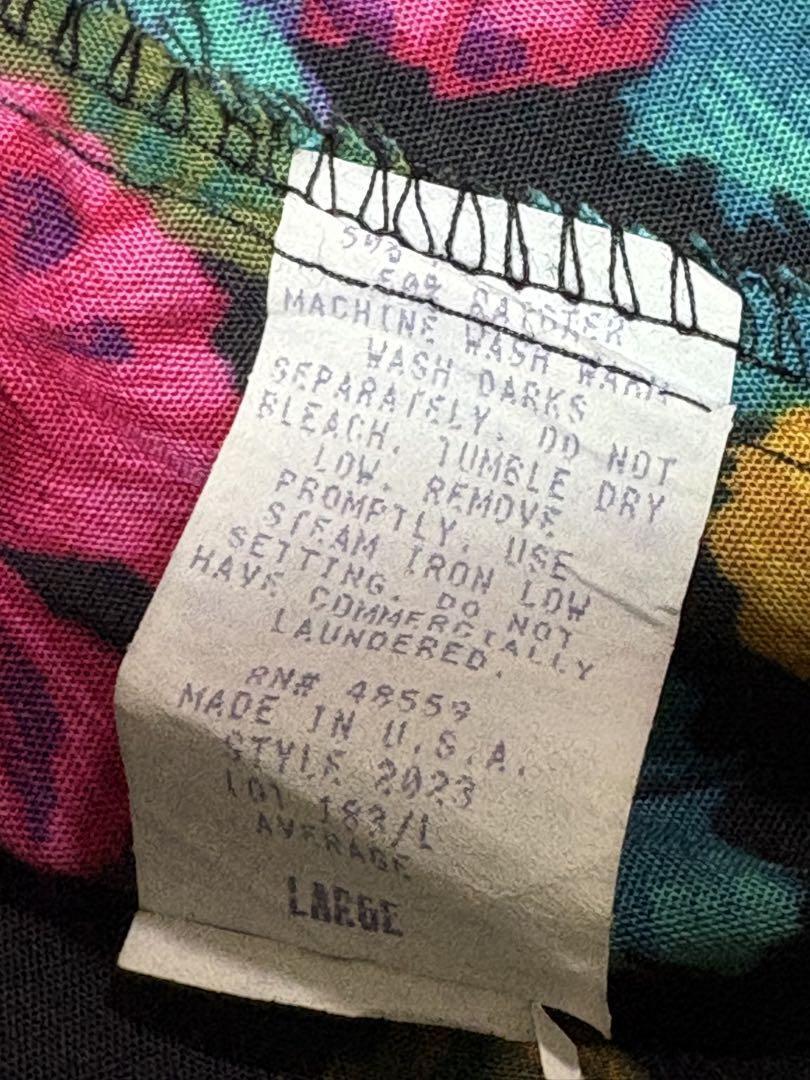 50%
MACHINE WASH WARM
WASH DARKS
SEPARATELY. DO NOT
BLEACH. TUMBLE DRY
LOW. REMOVE
PROMPTLY. USE
STEAM IRON LOW
SETTING. DO NOT
HAVE COMMERCIALLY
LAUNDERED.
RN# 48559
MADE IN U.S.A.
STYLE 2023
LOT 183/L
AVERAGE
LARGE